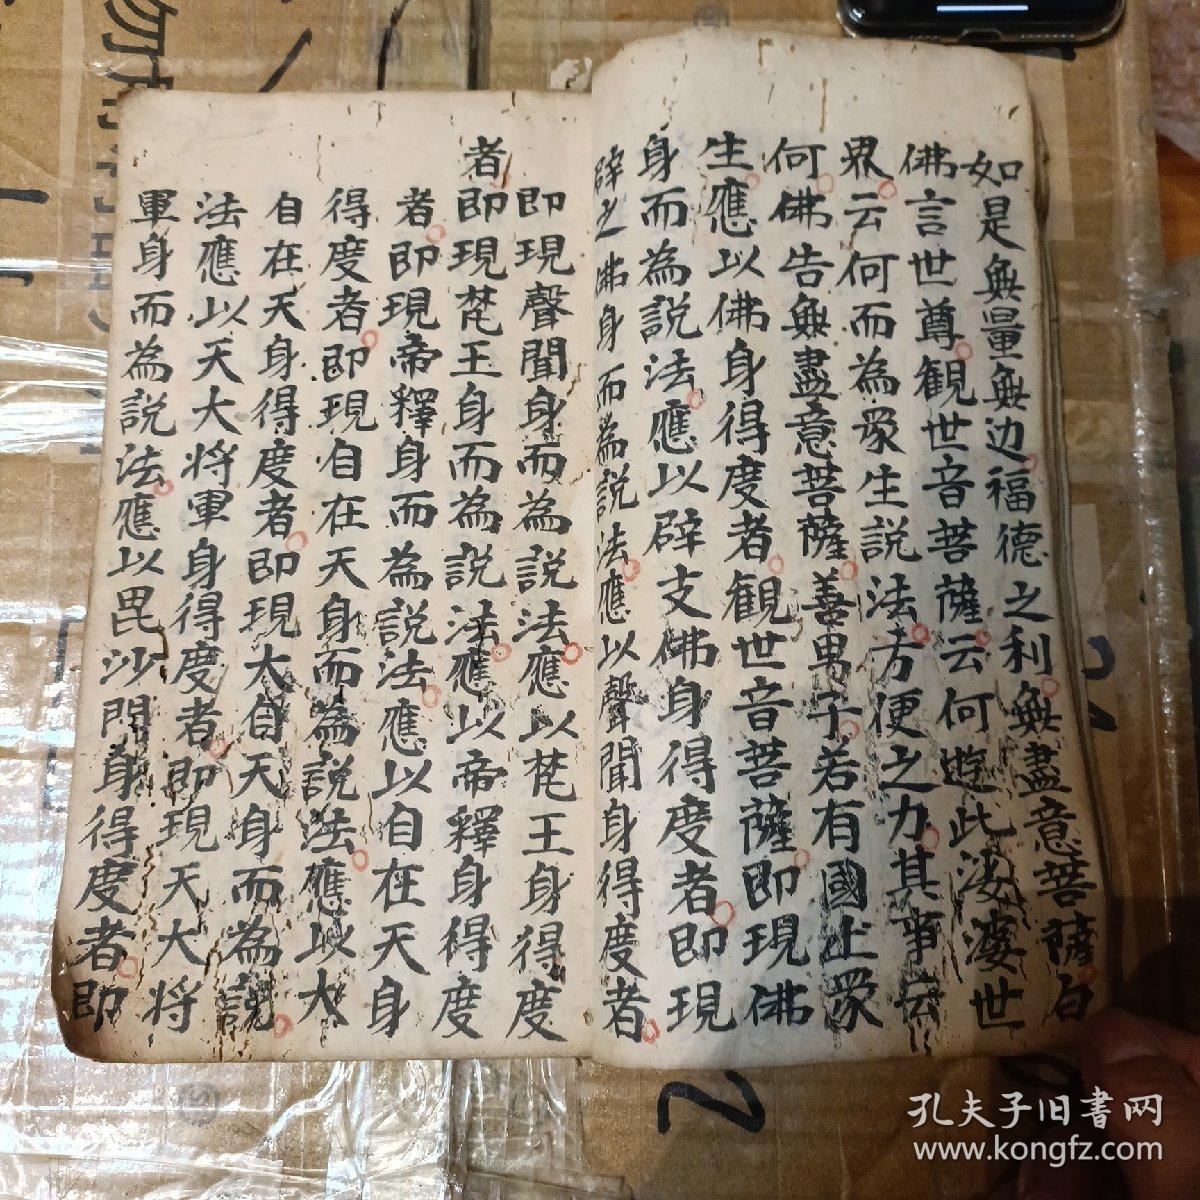 如是無量無边福德之利無盡意菩薩白
佛言世尊観世音菩薩云何遊此娑婆世
界云何而為眾生説法方便之力其事云
何佛告無盡意菩薩善男子若有國土眾
生應以佛身得度者観世音菩薩即現佛
身而為説法應以辟支佛身得度者即現
辟之佛身而為説法應以聲聞身得度者
即現聲聞身而為説法應以梵王身得度
者即現梵王身而為説法應以帝釋身得度
者即現帝釋身而為説法應以自在天身
得度者即現自在天身而為説法應以大
自在天身得度者即現大自天身而為説
法應以天大将軍身得度者即現天大将
軍身而為説法應以毘沙門身得度者即
孔夫子旧書网
www.kongfz.com